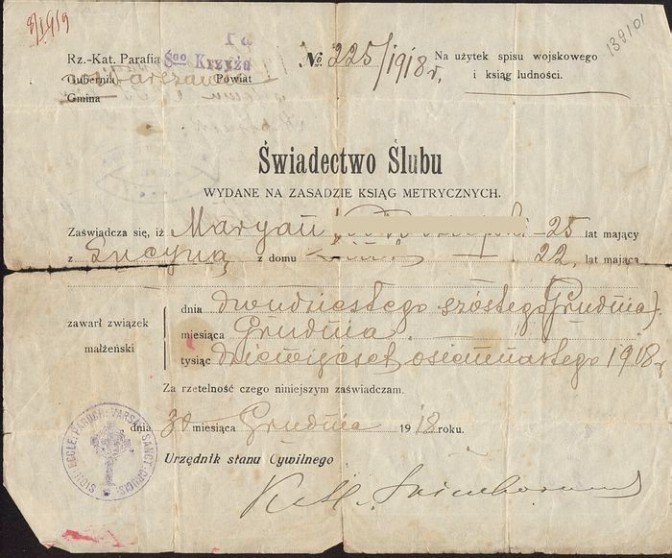 8/I 919
139101
Rz.-Kat. Parafia Sgo Krzyża
№ 225/1918 r.
Na użytek spisu wojskowego
i ksiąg ludności.
Gubernia Warszawa Powiat
Gmina
Świadectwo Ślubu
WYDANE NA ZASADZIE KSIĄG METRYCZNYCH.
Zaświadcza się, iż Maryan 25 lat mający
z Lucyną z domu 22 lat mającą
zawarł związek
małżeński
dnia dwudziestego szóstego Grudnia
miesiąca Grudnia
tysiąc dziewięćset osiemnastego 1918 r
Za rzetelność czego niniejszym zaświadczam.
dnia 30 miesiąca Grudnia 1918 roku.
Urzędnik stanu Cywilnego
SIGIL: ECCLE: PAROCH: VARSAV: SANCT: CRUCIS